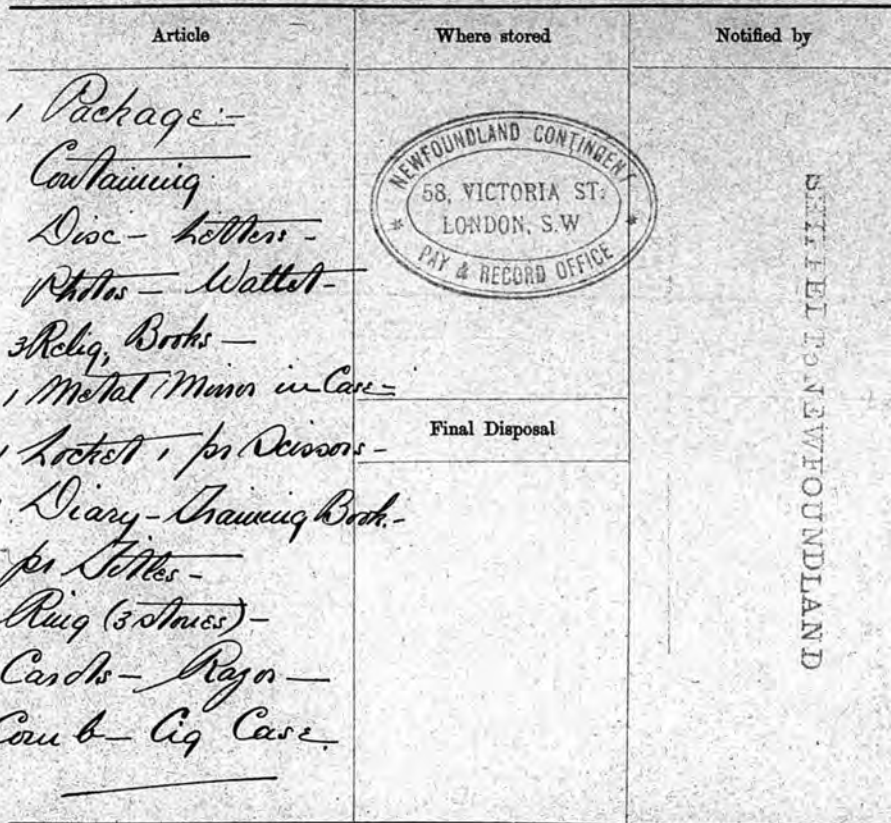 Article
Where stored
Notified by
1 Package:-
Containing
Disc - Letters -
Photos - Wallet -
3 Relig, Books -
1 Metal Mirror in Case -
1 Locket 1 pr Scissors -
1 Diary - Training Book. -
pr Titles -
Ring (3 stones) -
Cards - Razor -
Comb - Cig Case.
NEWFOUNDLAND CONTINGENT
58, VICTORIA ST:
LONDON, S.W
PAY & RECORD OFFICE
Final Disposal
TO NEWFOUNDLAND